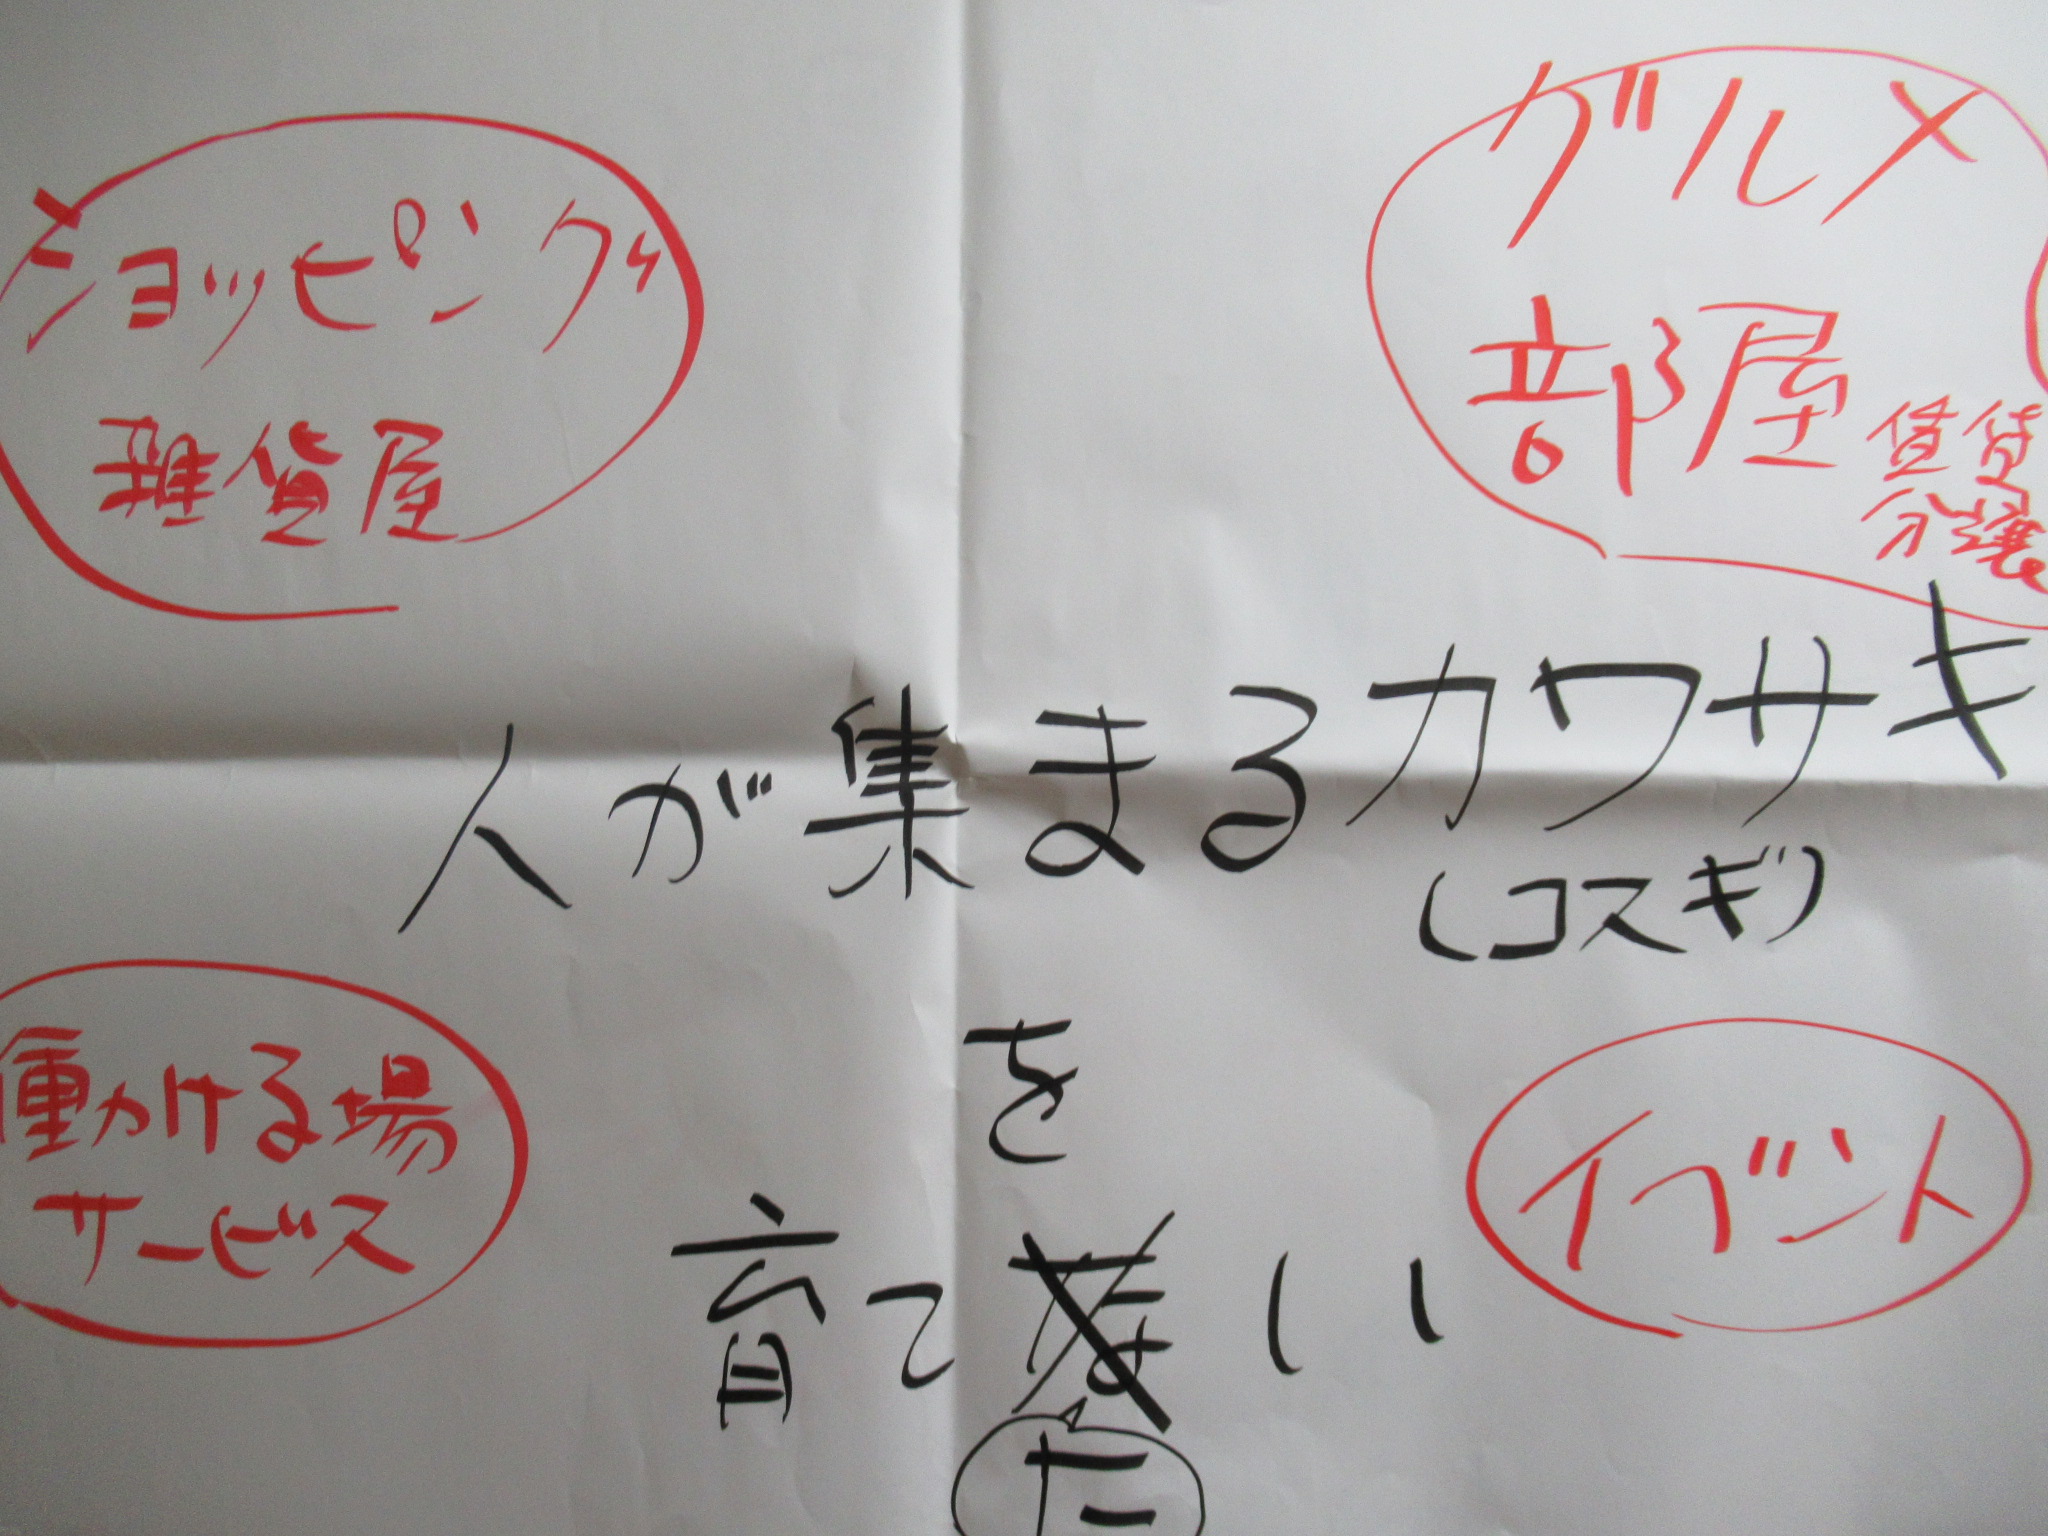 ショッピング
雑貨屋
グルメ
部屋
賃貸
分譲
人が集まるカワサキ
(コスギ)
を
育てない
た
働かける場
サービス
イベント